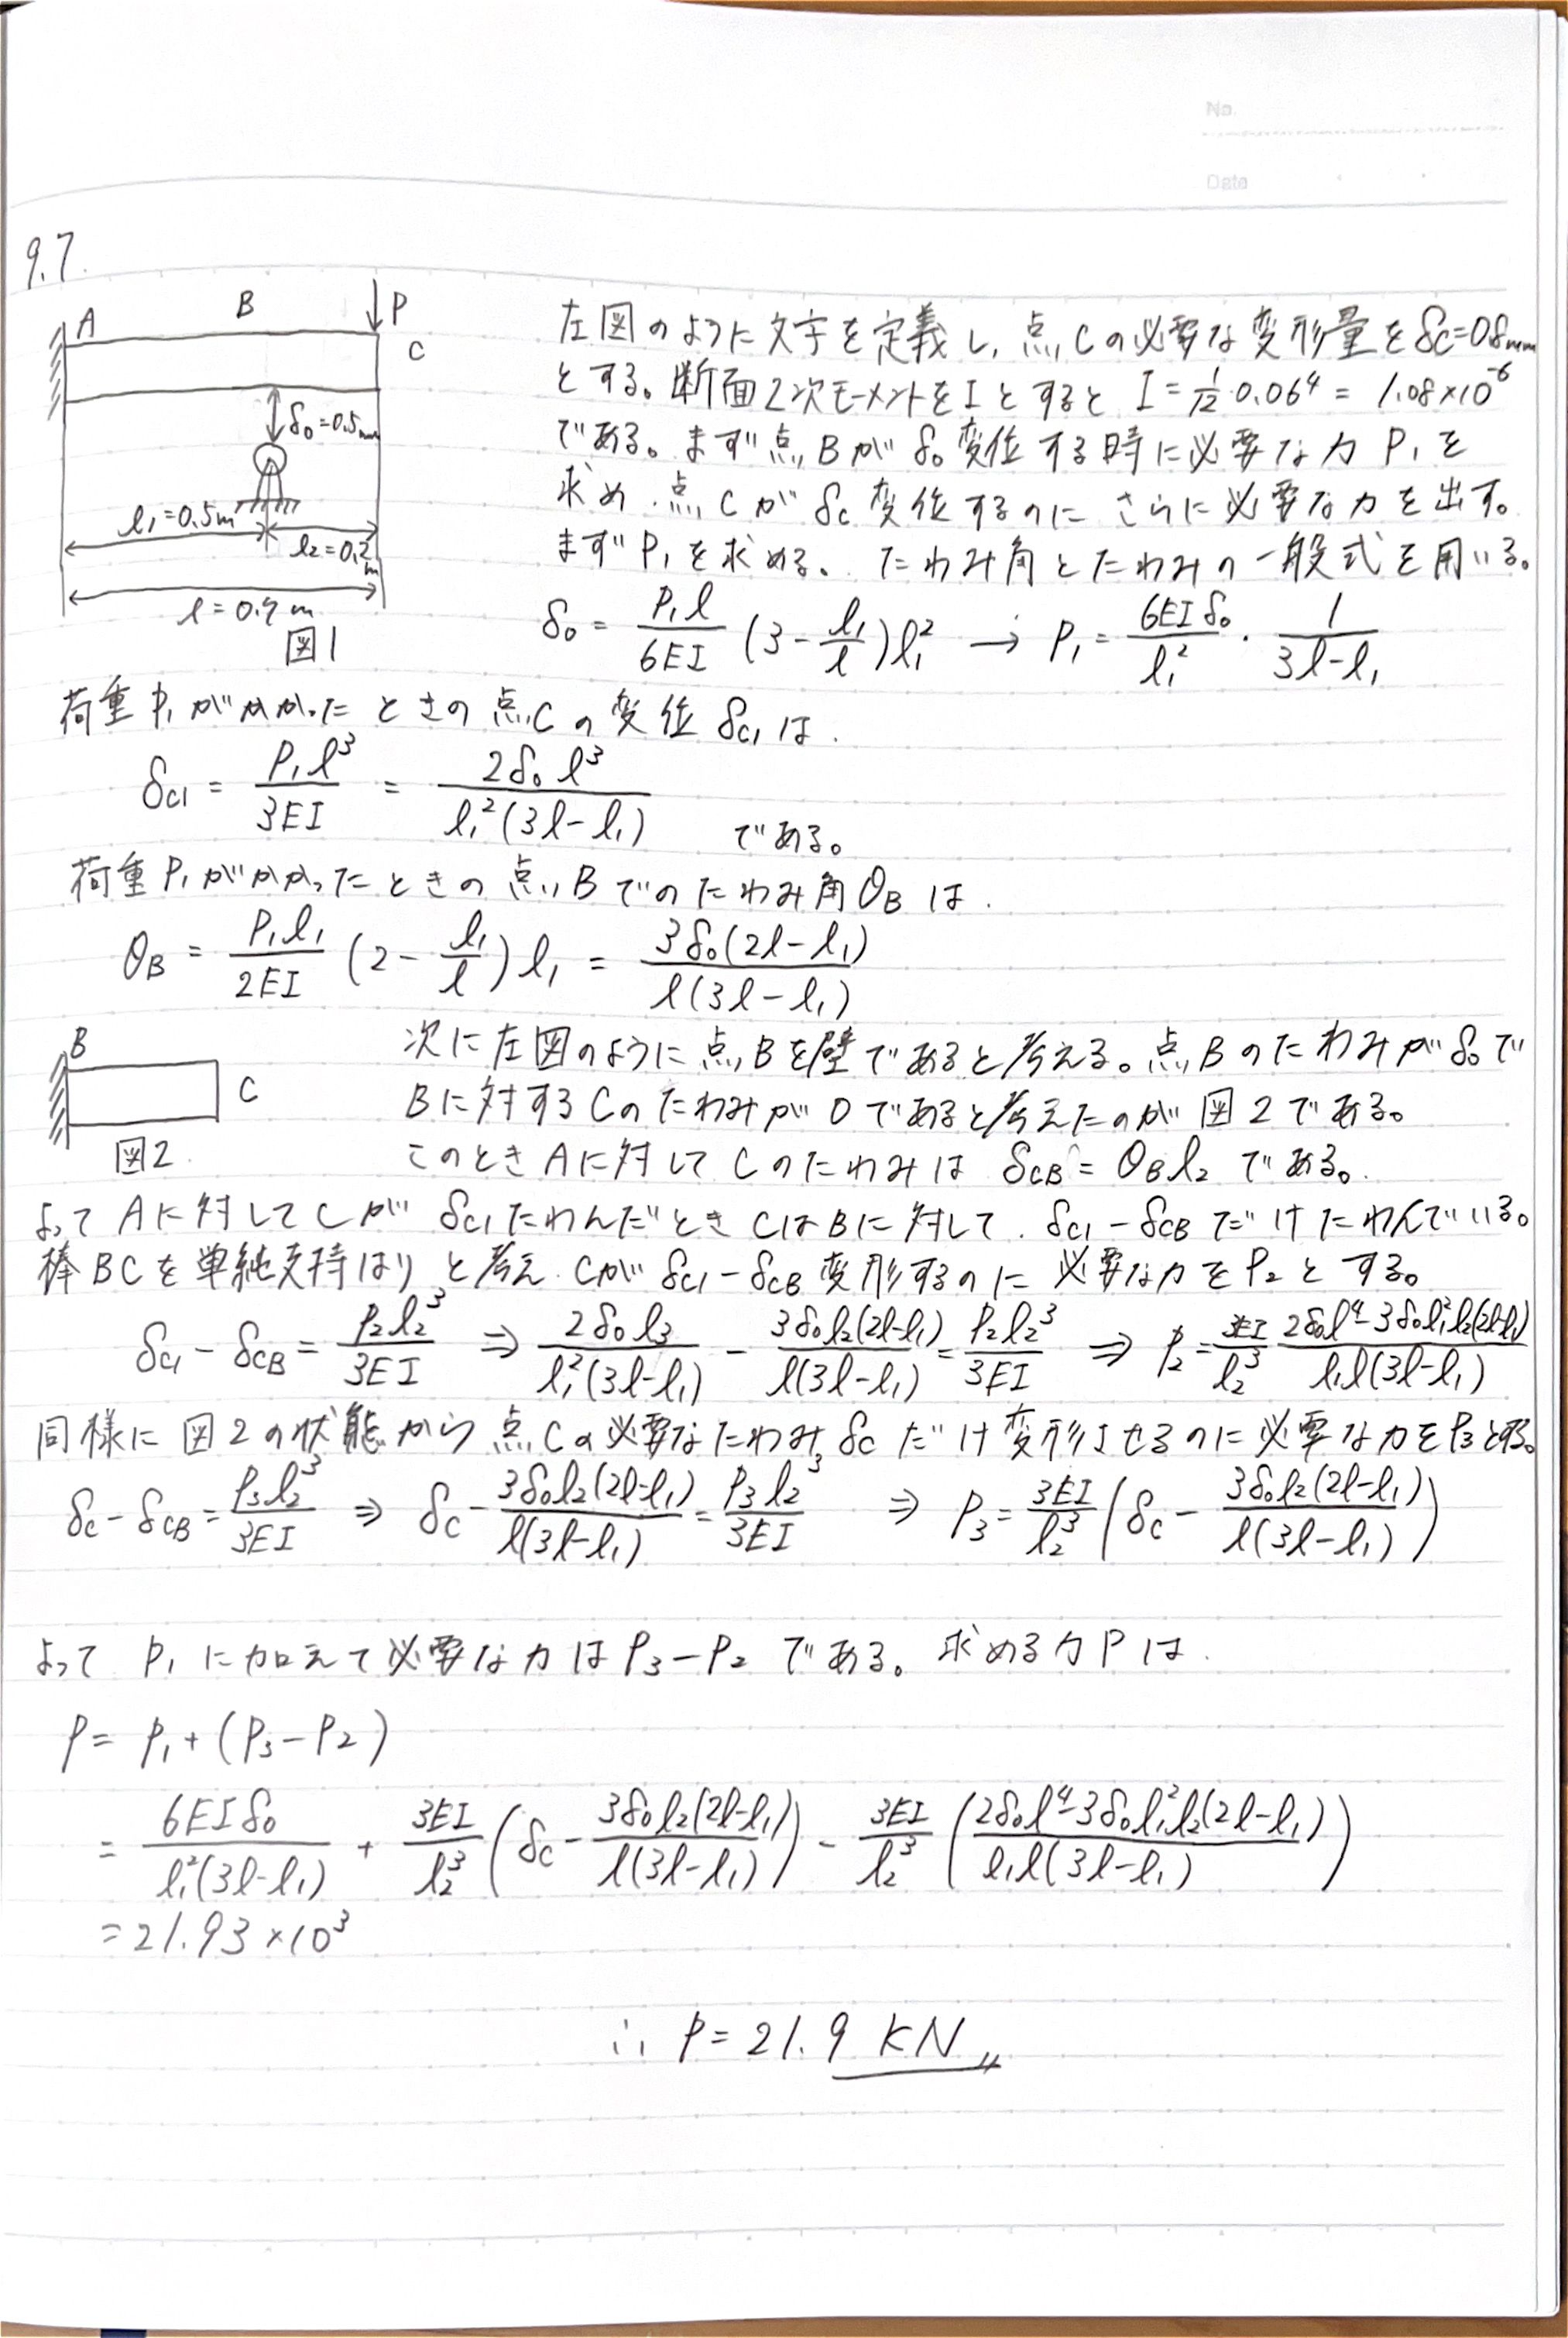 No.
Date
9.7.
A B P C
δ₀=0.5mm
l₁=0.5m
l₂=0.2m
l=0.7m
図1
左図のように文字を定義し、点Cの必要な変形量をδc=0.8mm
とする。断面2次モーメントをIとすると I=1/12・0.06⁴=1.08×10⁻⁶
である。まず点Bがδ₀変位する時に必要な力P₁を
求め、点Cがδc変位するのにさらに必要な力を出す。
まずP₁を求める。たわみ角とたわみの一般式を用いる。
δ₀ = P₁l/6EI (3-l₁/l)l₁² → P₁ = 6EIδ₀/l₁² ・ 1/(3l-l₁)
荷重P₁がかかったときの点Cの変位δc₁は.
δc₁ = P₁l³/3EI = 2δ₀l³/l₁²(3l-l₁) である。
荷重P₁がかかったときの点Bでのたわみ角θBは.
θB = P₁l₁/2EI (2-l₁/l)l₁ = 3δ₀(2l-l₁)/l(3l-l₁)
B C
図2
次に左図のように点Bを壁であると考える。点Bのたわみがδ₀で
Bに対するCのたわみが0であると考えたのが図2である。
このときAに対してCのたわみは δCB=θBl₂ である。
よってAに対してCがδc₁たわんだときCはBに対して.δc₁-δCBだけたわんでいる。
棒BCを単純支持はりと考え.Cがδc₁-δCB変形するのに必要な力をP₂とする。
δc₁-δCB = P₂l₂³/3EI ⇒ 2δ₀l₃/l₁²(3l-l₁) - 3δ₀l₂(2l-l₁)/l(3l-l₁) = P₂l₂³/3EI ⇒ P₂ = 3EI/l₂³ 2δ₀l⁴-3δ₀l₁²l₂(2l-l₁)/l₁l(3l-l₁)
同様に図2の状態から点Cの必要なたわみδcだけ変形させるのに必要な力をP₃とする。
δc-δCB = P₃l₂³/3EI ⇒ δc - 3δ₀l₂(2l-l₁)/l(3l-l₁) = P₃l₂³/3EI ⇒ P₃ = 3EI/l₂³ (δc - 3δ₀l₂(2l-l₁)/l(3l-l₁))
よってP₁に加えて必要な力はP₃-P₂である。求める力Pは.
P = P₁+(P₃-P₂)
= 6EIδ₀/l₁²(3l-l₁) + 3EI/l₂³ (δc - 3δ₀l₂(2l-l₁)/l(3l-l₁)) - 3EI/l₂³ (2δ₀l⁴-3δ₀l₁²l₂(2l-l₁)/l₁l(3l-l₁))
=21.93×10³
∴ P=21.9 KN〃